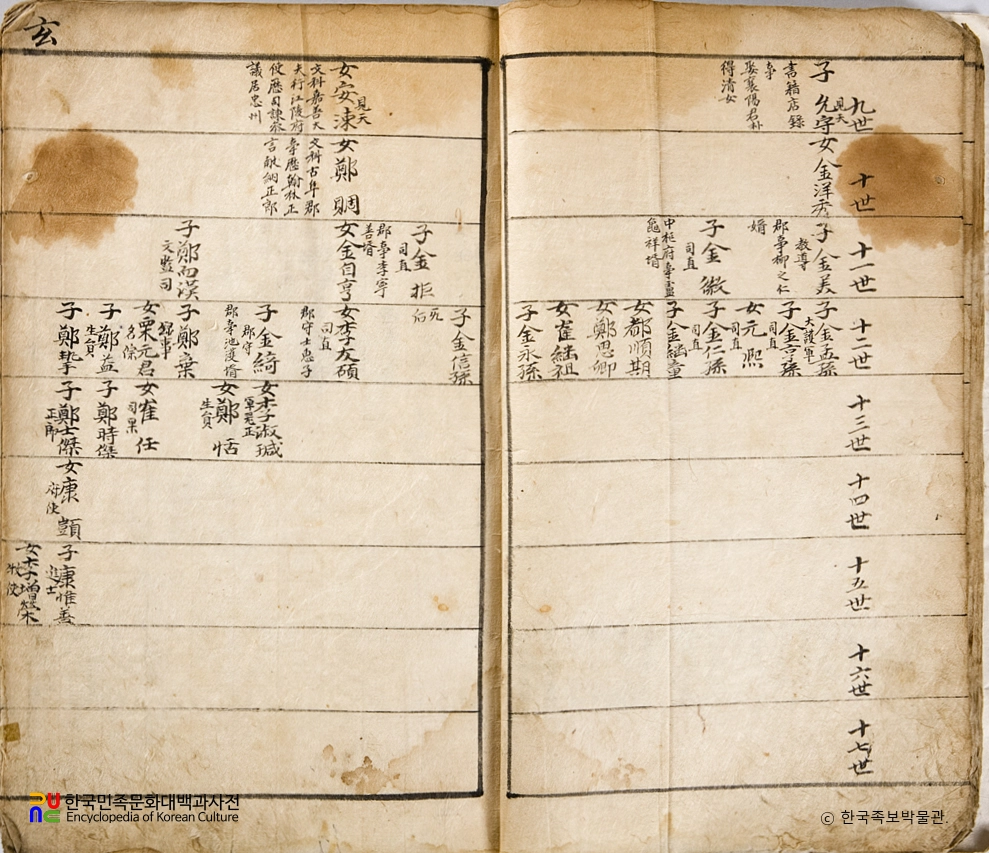 九世
十世
十一世
十二世
十三世
十四世
十五世
十六世
十七世
子 允守
見天
書籍店錄
事
娶襄陽君朴
得淸女
女金洋秀
子金美
敎導
郡事柳之仁
婿
子金徽
司直
中樞府事
龜祥婿
子金孟孫
大護軍
子金亨孫
司直
女元熙
司直
子金仁孫
司直
子金繼童
女都順期
女鄭思卿
女崔繼祖
子金永孫
子金信孫
子金拒
司直
郡事李寧
善婿
女安涑
見天
文科嘉善大
夫行江陵府
使歷司諫家
議居忠州
女鄭賙
文科古阜郡
事歷翰林正
言獻納正郎
女金自亨
女李友碩
司直
郡守士惠子
子金綺
郡守
郡事池浚婿
女李淑瑊
女鄭恬
生員
子鄭而漢
文監司
子鄭棐
錄事
女栗元君
名悰
女崔任
司果
子鄭益
生員
子鄭時傑
子鄭摯
子鄭士傑
正郎
女康顗
府使
子康惟善
進士
女李增榮
牧使
玄
한국민족문화대백과사전
Encyclopedia of Korean Culture
ⓒ 한국족보박물관.